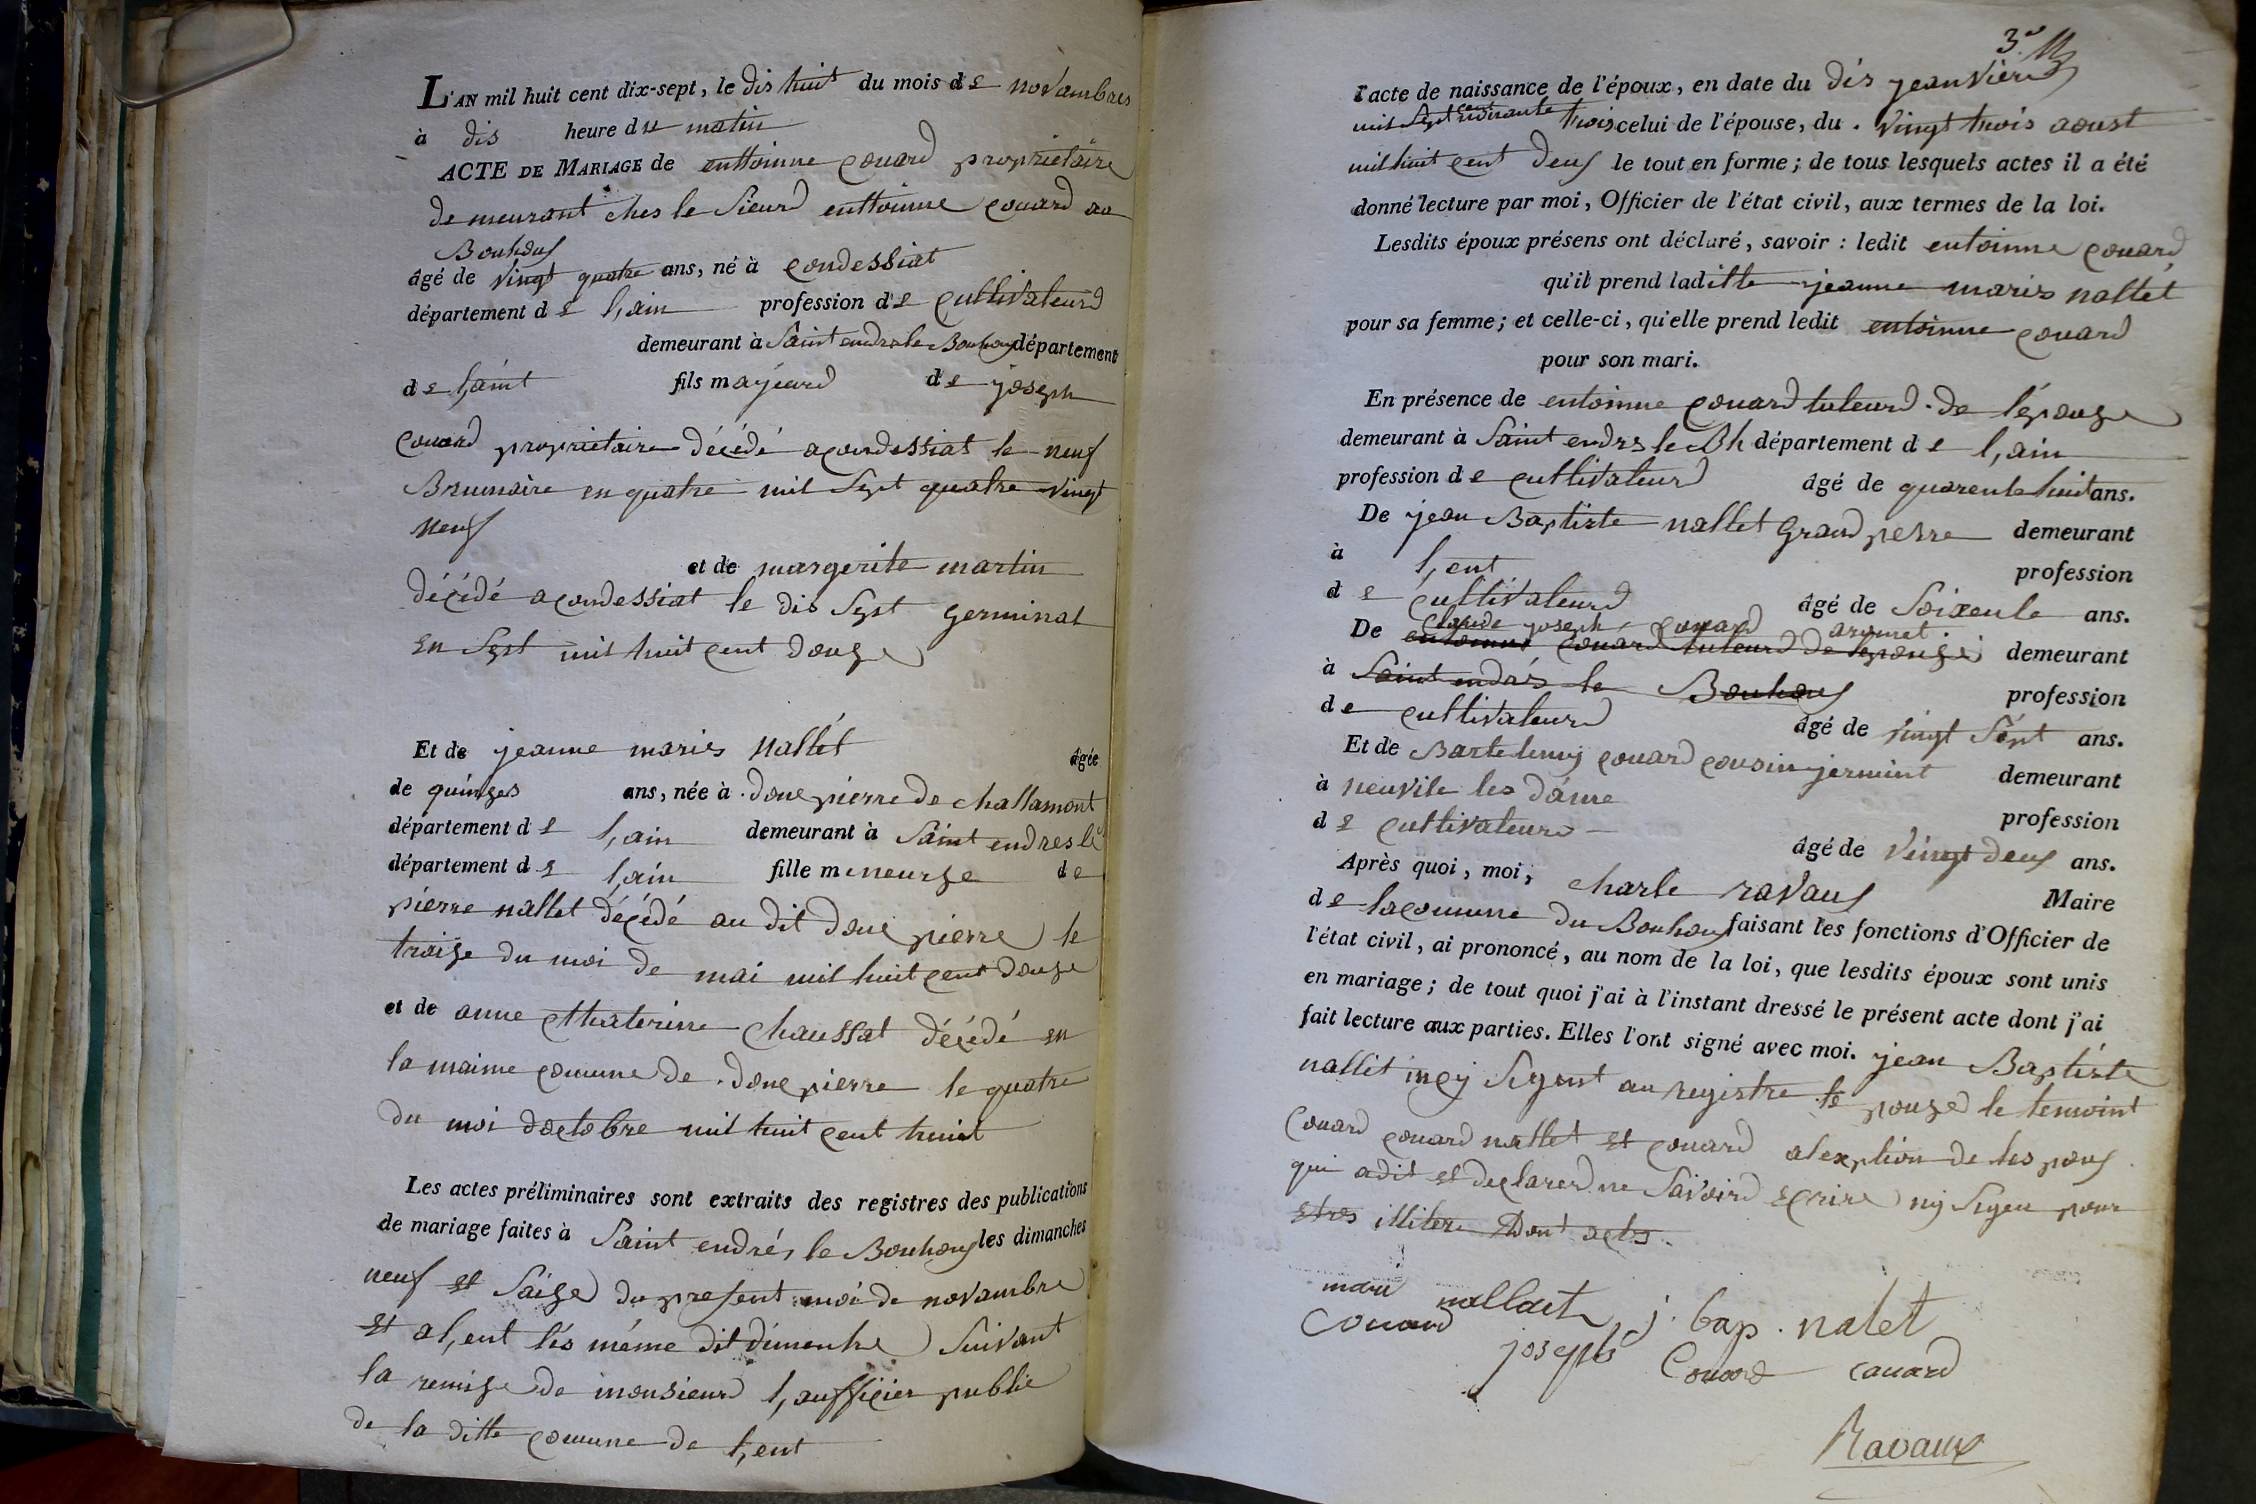 L'AN mil huit cent dix-sept, le dis huit du mois de novambres
à dis heure du matin
ACTE DE MARIAGE de enttoinne couard proprietaire
demeurant ches le Sieurd enttoinne couard au
Bouhous
âgé de vingt quatre ans, né à condessiat
département de l,ain profession de cultivateurd
demeurant à Saint endre le Bouhous département
de l,aint fils majeurd de joseph
couard proprietaire décédé a condessiat le neuf
Brumaire en quatre mil Sept quatre vingt
neuf
et de margerite martin
décédé a condessiat le dis Sept germinal
en Sept mil huit cent douze
Et de jeanne maries nallét âgée
de quinzes ans, née à donc pierre de challamont
département de l,ain demeurant à Saint endres le
département de l,ain fille meneurze de
pierre nallet décédé au dit donc pierre le
traize du moi de mai mil huit cent douze
et de anne Chaterine Chaussat décédé en
la maime comune de donc pierre le quatre
du moi doctobre mil huit cent huit
Les actes préliminaires sont extraits des registres des publications
de mariage faites à Saint endrés le Bouhous les dimanches
neuf et Saize du present moi de novambre
et a l,ent lés méme dit dimenche Suivant
la remise de monsieurd l,aufficier public
de la ditte comune de l,ent
3e
l'acte de naissance de l'époux, en date du dis jeanvierd
mil Sept cent
trois celui de l'épouse, du vingt trois aoust
mil huit cent deux le tout en forme; de tous lesquels actes il a été
donné lecture par moi, Officier de l'état civil, aux termes de la loi.
Lesdits époux présens ont déclaré, savoir : ledit entoinne couard
qu'il prend laditte jeanne maries nallet
pour sa femme; et celle-ci, qu'elle prend ledit entoinne couard
pour son mari.
En présence de entoinne couard tuteurd de l'épouze
demeurant à Saint endres le Bh département de l,ain
profession de cultivateurd âgé de quarente huit ans.
De jean Baptiste nallet Grand perre demeurant
à l,ent profession
de cultivateurd âgé de Soixente ans.
Claude joseph couard
De entoinne couard tuteurd de lepouze demeurant
à Saint endrés le Bouhous profession
de cultivateurd âgé de vingt Sépt ans.
Et de Bartelemy couard cousin jermint demeurant
à neuvile les dame profession
de cultivateurd âgé de vingt deux ans.
Après quoi, moi, charle ravaux Maire
de la comune du Bouhous faisant les fonctions d'Officier de
l'état civil, ai prononcé, au nom de la loi, que lesdits époux sont unis
en mariage; de tout quoi j'ai à l'instant dressé le présent acte dont j'ai
fait lecture aux parties. Elles l'ont signé avec moi. jean Baptiste
nallit incy Signent au registre le pouze le temoint
Couard couard nallet et couard alexption de les pous
qui a dit et declarerd ne Savoird ecrire ny Signe pour
etres illitere Dont actes.
mari nallaet j. bap. nalet
Couard joseph Couard couard
Ravaux